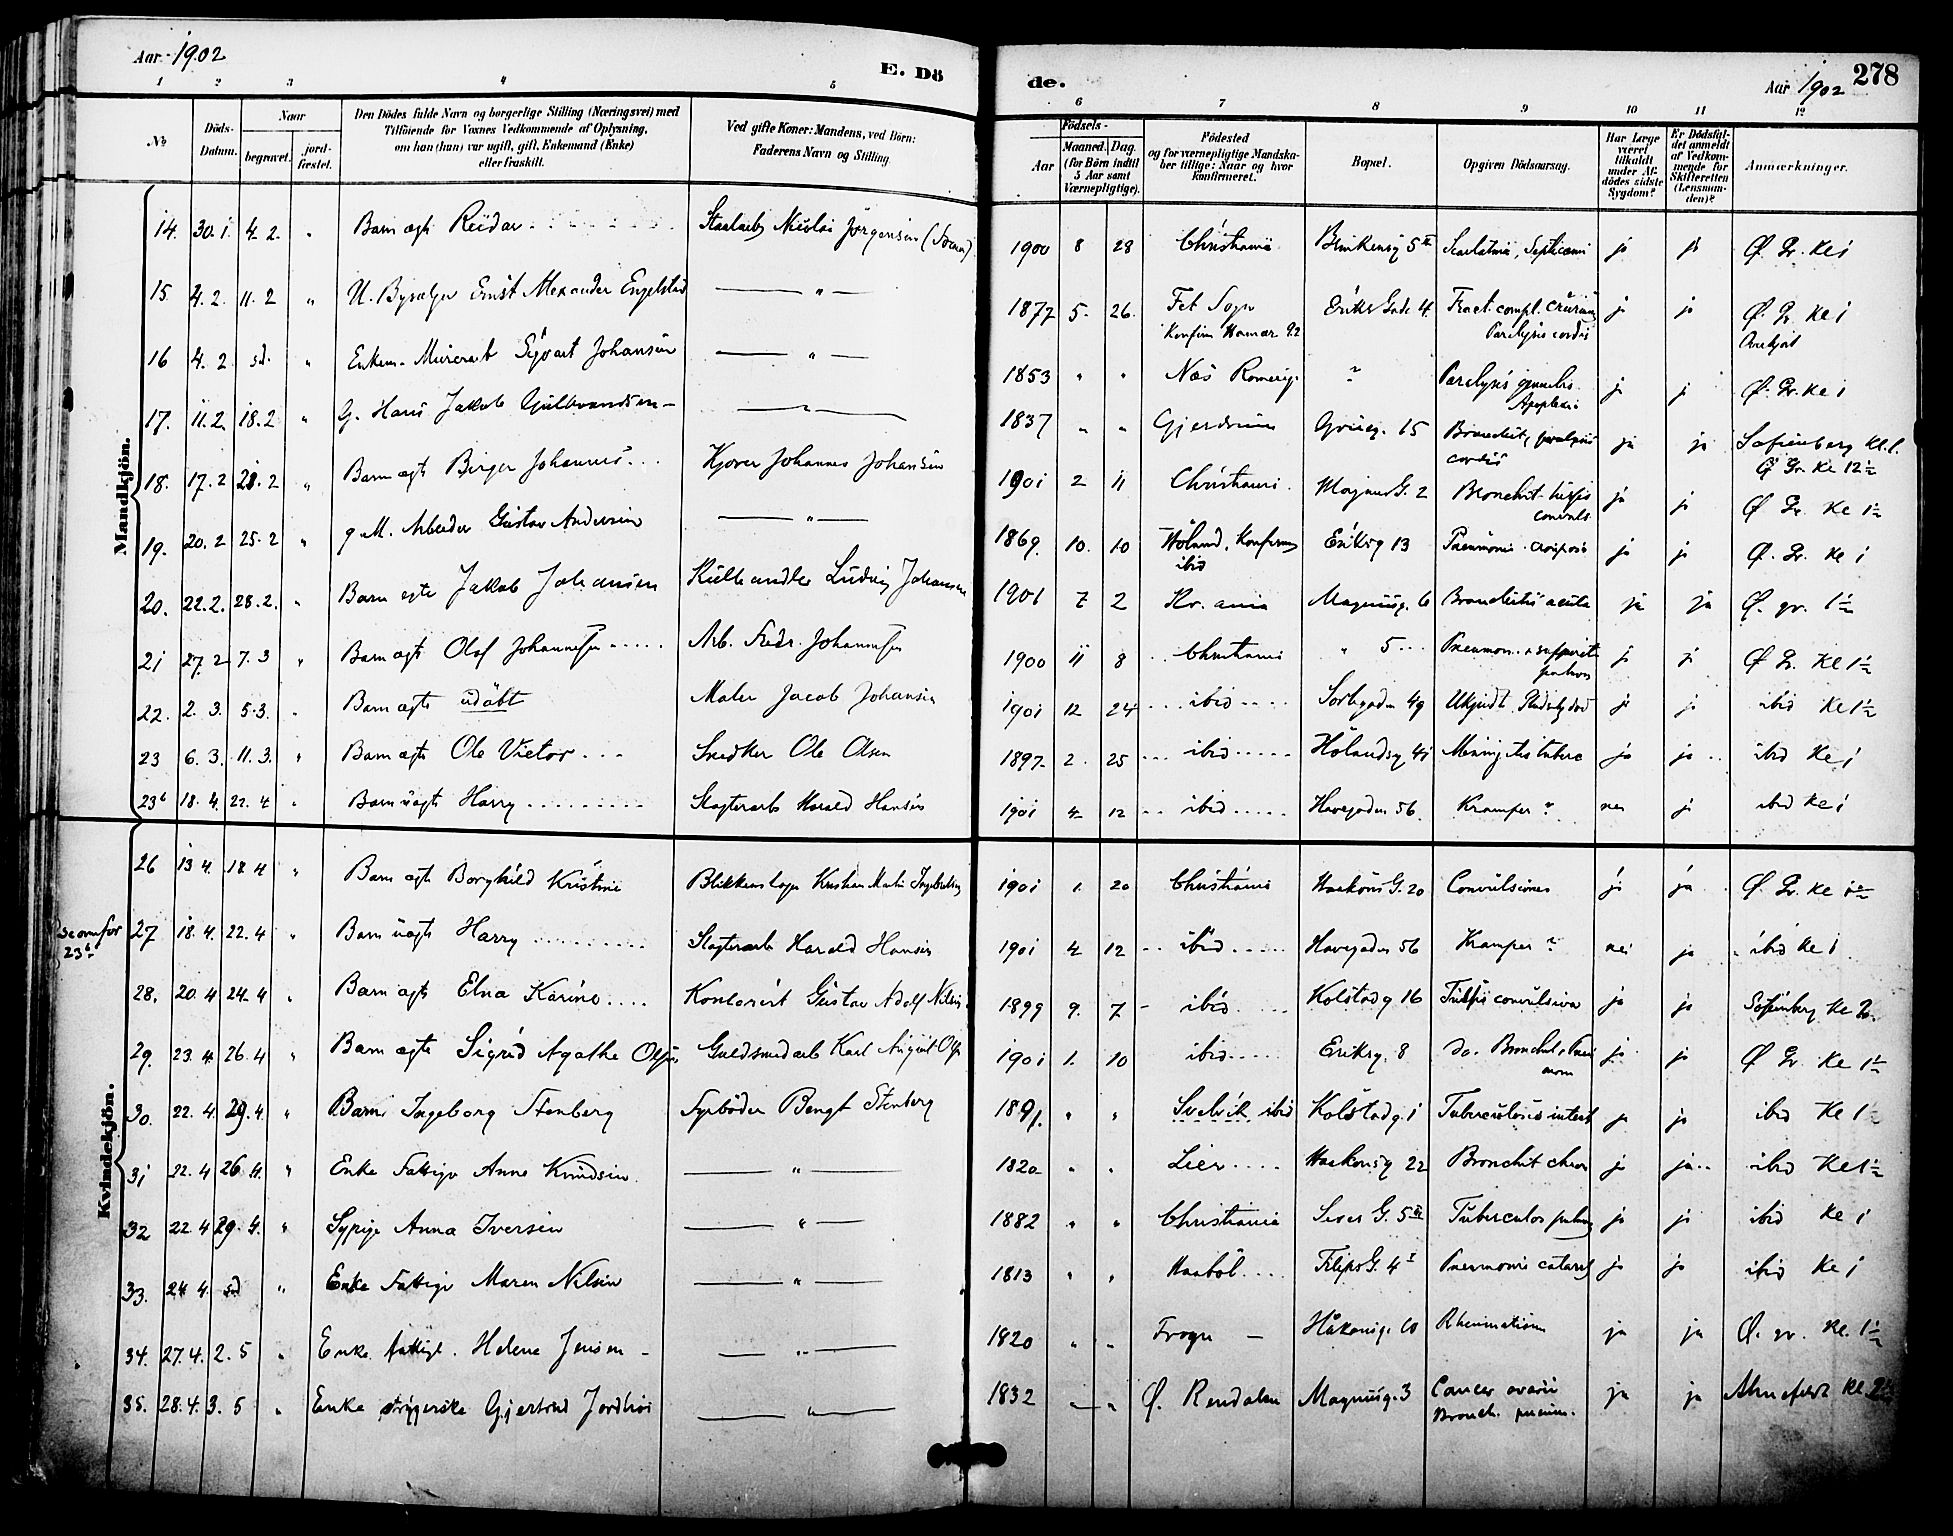 Aar 1902
E. Dö
de.
Aar 1902
278
1 2 3 4 5 6 7 8 9 10 11 12
No
Döds-Datum.
Naar
begravet.
jord-fæstet.
Den Dödes fulde Navn og borgerlige Stilling (Næringsvei) med
Tilföiende for Voxnes Vedkommende af Oplysning,
om han (hun) var ugift, gift, Enkemand (Enke)
eller fraskilt.
Ved gifte Koner: Mandens, ved Börn:
Faderens Navn og Stilling.
Födsels-
Aar
Maaned. Dag.
(for Börn indtil
5 Aar samt
Værnepligtige).
Födested
og for værnepligtige Mandska-
ber tillige: Naar og hvor
konfirmeret.
Bopæl.
Opgiven Dödsaarsag.
Har Læge
været
tilkaldt
under Af-
dödes sidste
Sygdom?
Er Dödsfal-
det anmeldt
af Vedkom-
mende for
Skifteretten
(Lensman-
den)?
Anmærkninger.
Mandkjön.
14. 30. 1. 4. 2. " Barn ægte Reidar Nicolai Jörgensen 1900 8 28 Christiania 5 II Scarlatina, Septicæmi ja ja Ø. Gr. Kl 1
15. 4. 2. 11. 2 " U. Ernst Alexander Engelstad — " — 1877 5. 26. Fet Sogn Eriks Gade 4. Fract. compl. cruris ja ja Ø. Gr. Kl 1
Konfirm Hamar 92 Paralysis cordis
16 4. 2. sd. " Enkem. Murerarb Sigvart Johansen — " — 1853 " " Næs Romerig. ? Paralysis ja ja Ø. Gr. Kl 1
Apoplexi
17. 11. 2. 18. 2 " G. Hans Jakob Gulbrandsen — " — 1837 " " Gjerdrum 15 Bronchit, paralysis ja ja Sofienberg Kl. 1.
cordis Ø Gr. Kl 12½
18. 17. 2 21. 2 " Barn ægte Birger Johannes Johannes Johansen 1901 2 11 Christiania. Magnus G. 2 Bronchit. tussis ja ja Ø Gr. Kl 1½
convuls
19. 20. 2 25. 2 " g M. Arbeider Gustav Andersen — " — 1869. 10. 10 Höland, Konfirm Eriksg 13 Pneumonia crouposa ja ja Ø. Gr. Kl 1
ibid
20. 22. 2. 28. 2. " Barn ægte Jakob Johansen Kulhandler Ludvig Johansen 1901 7 2 Kr.ania Magnusg. 6 Bronchitis acuta ja ja Ø. gr. 1½
21 27. 2 7. 3 " Barn ægte Olaf Johannesen Arb. Fredr. Johannesen 1900 11 8 Christiania " 5 Pneumon. ja ja Ø Gr. Kl 1½
22. 2. 3. 5. 3. " Barn ægte udöbt Maler Jacob Johansen 1901 12 24 ibid 49 Ukjendt ja ja ibid Kl 1½
23 6. 3. 11. 3. " Barn ægte Ole Victor Snedker Ole Olsen 1897. 2. 25 ibid Hölandsg 41 Meningitis tuberc ja ja ibid Kl 1
23b 18. 4. 22. 4 " Barn uægte Harry Slagterarb Harald Hansen 1901 4 12 ibid Havegaden 56 Kramper ? nei ja ibid Kl 1
Kvindekjön.
26 13 4. 18. 4 " Barn ægte Borghild Kristine Blikkenslager Kristian 1901 1. 20 Christiania Haakons G. 20 Convulsiones ja ja Ø. Gr. Kl
Se ovenfor
23b
27 18. 4. 22. 4 " Barn uægte Harry Slagterarb Harald Hansen 1901 4 12 ibid Havegaden 56 Kramper ? nei ja ibid Kl 1
28. 20. 4 24. 4 " Barn ægte Elna Karine Kontorist Gustav Adolf Nilsen 1899 9. 7 ibid Kolstadg 16 Tussis convulsiva ja ja Sofienberg Kl 2
29. 23. 4 26. 4 " Barn ægte Sigrid Agathe Olsen Guldsmedarb Karl August Olsen 1901 1. 10 ibid Eriksg. 8 do. Bronchit. ja ja Ø Gr Kl 1½
30. 22. 4. 29. 4. " Barn Ingeborg Stenberg Fyrböder Bengt Stenberg 1891. " " Svelvik ibid Kolstadg. 1 Tuberculosis intest ja ja ibid Kl 1
31 22. 4 26. 4. " Enke Fattige Anne Knudsen. — " — 1820 " " Lier Haakonsg 22 Bronchit chron ja ja ibid Kl 1½
32 22. 4 29. 4. " Sypige Anna Iversen — " — 1882 " " Christiania 5 III Tuberculos pulm ja ja ibid Kl 1
33. 24. 4. sd " Enke Fattige Maren Nilsen — " — 1813 " " Haaböl Filips G. 4 I Pneumoni catarrh ja ja ibid Kl 1
34. 27. 4. 2. 5 " Enke fattigl. Helene Jensen — " — 1820 " " Frogn — Håkonsg. 10 Rheumatism ja ja Ø. gr. Kl. 1½
35. 28. 4. 3. 5 " Enke Gjertrud — " — 1832 " " Ø. Rendalen Magnusg. 3 Cancer ovarii ja ja
Bronch. pneum.